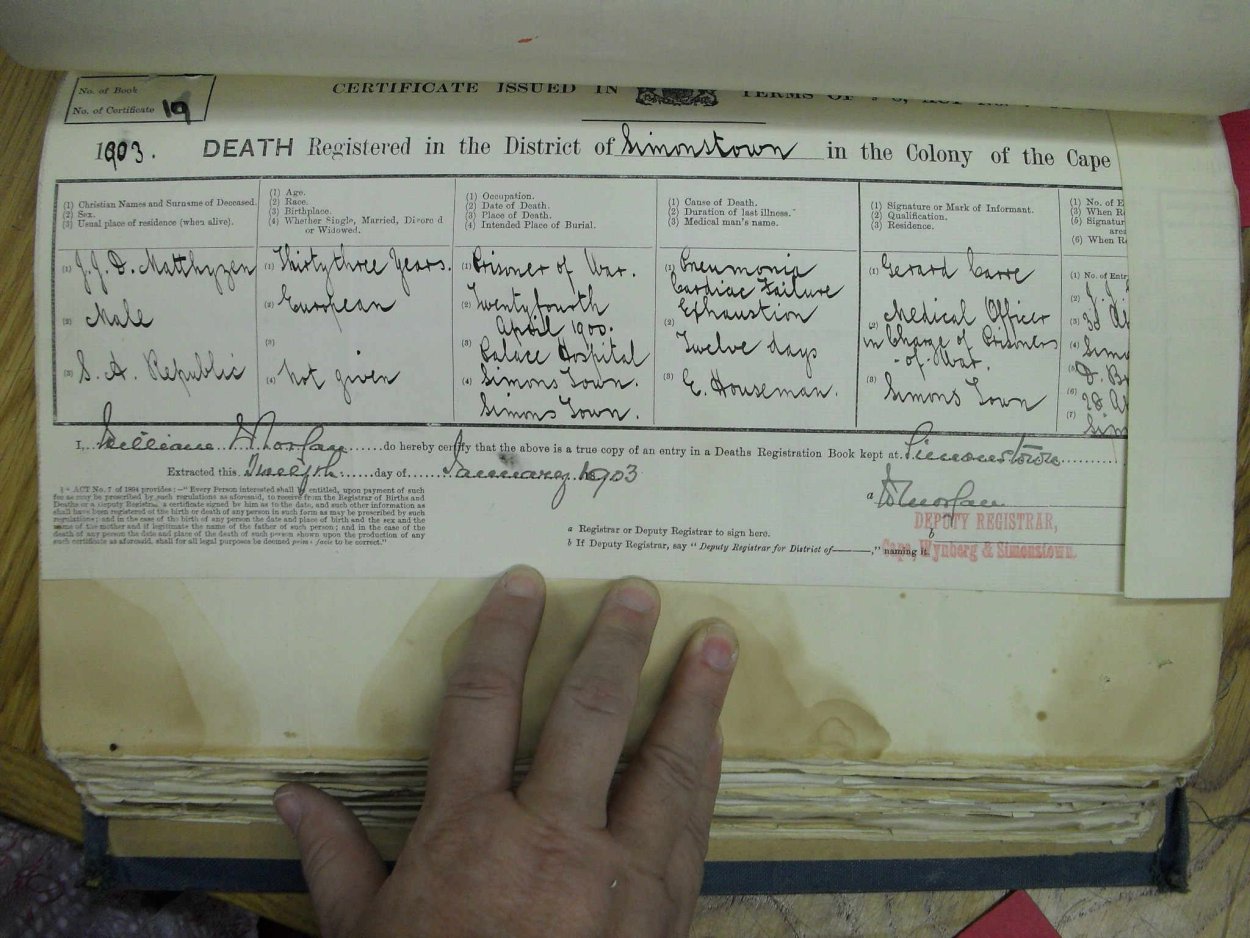 No. of Book
No. of Certificate 19
CERTIFICATE ISSUED IN TERMS OF
1903. DEATH Registered in the District of Simonstown in the Colony of the Cape
(1) Christian Names and Surname of Deceased.
(2) Sex.
(3) Usual place of residence (when alive).
(1) Age.
(2) Race.
(3) Birthplace.
(4) Whether Single, Married, Divorced
or Widowed.
(1) Occupation.
(2) Date of Death.
(3) Place of Death.
(4) Intended Place of Burial.
(1) Cause of Death.
(2) Duration of last illness.
(3) Medical man's name.
(1) Signature or Mark of Informant.
(2) Qualification.
(3) Residence.
(1) No. of E
(2) When Re
(5) Signatur
(6) When Re
(1) J. J. D. Matthyzen
(2) Male
(3) S. A. Republic
(1) Thirty three Years.
(2) European
(3)
(4) Not given
(1) Prisoner of War.
(2) Twenty fourth
April 1900.
(3) Palace Hospital
Simons Town.
(4) Simons Town.
(1) Pneumonia
Cardiac Failure
Exhaustion
(2) Twelve days
(3) E. Houseman.
(1) Gerard Carre
(2) Medical Officer
in Charge of Prisoners
of War.
(3) Simons Town
(1) No. of Entr
(2) J. J.
(3)
(4) Simo
(5)
(6) 28
(7) Sim
I, William Morgan do hereby certify that the above is a true copy of an entry in a Deaths Registration Book kept at Simonstown
Extracted this Twelfth day of January 1903
* ACT No. 7 of 1894 provides:—"Every Person interested shall be entitled, upon payment of such
fee as may be prescribed by such regulations as aforesaid, to receive from the Registrar of Births and
Deaths or a Deputy Registrar, a certificate signed by him as to the date, and such other information as
shall have been registered of the birth or death of any person in such form as may be prescribed by such
regulations; and in the case of the birth of any person the date and place of birth and the sex and the
name of the mother and if legitimate the name of the father of such person; and in the case of the
death of any person the date and place of death of such person shown upon the production of any
such certificate as aforesaid, shall for all legal purposes be deemed prima facie to be correct."
a WMorgan
DEPUTY REGISTRAR,
b
Cape, Wynberg & Simonstown.
a Registrar or Deputy Registrar to sign here.
b If Deputy Registrar, say "Deputy Registrar for District of——," naming it.